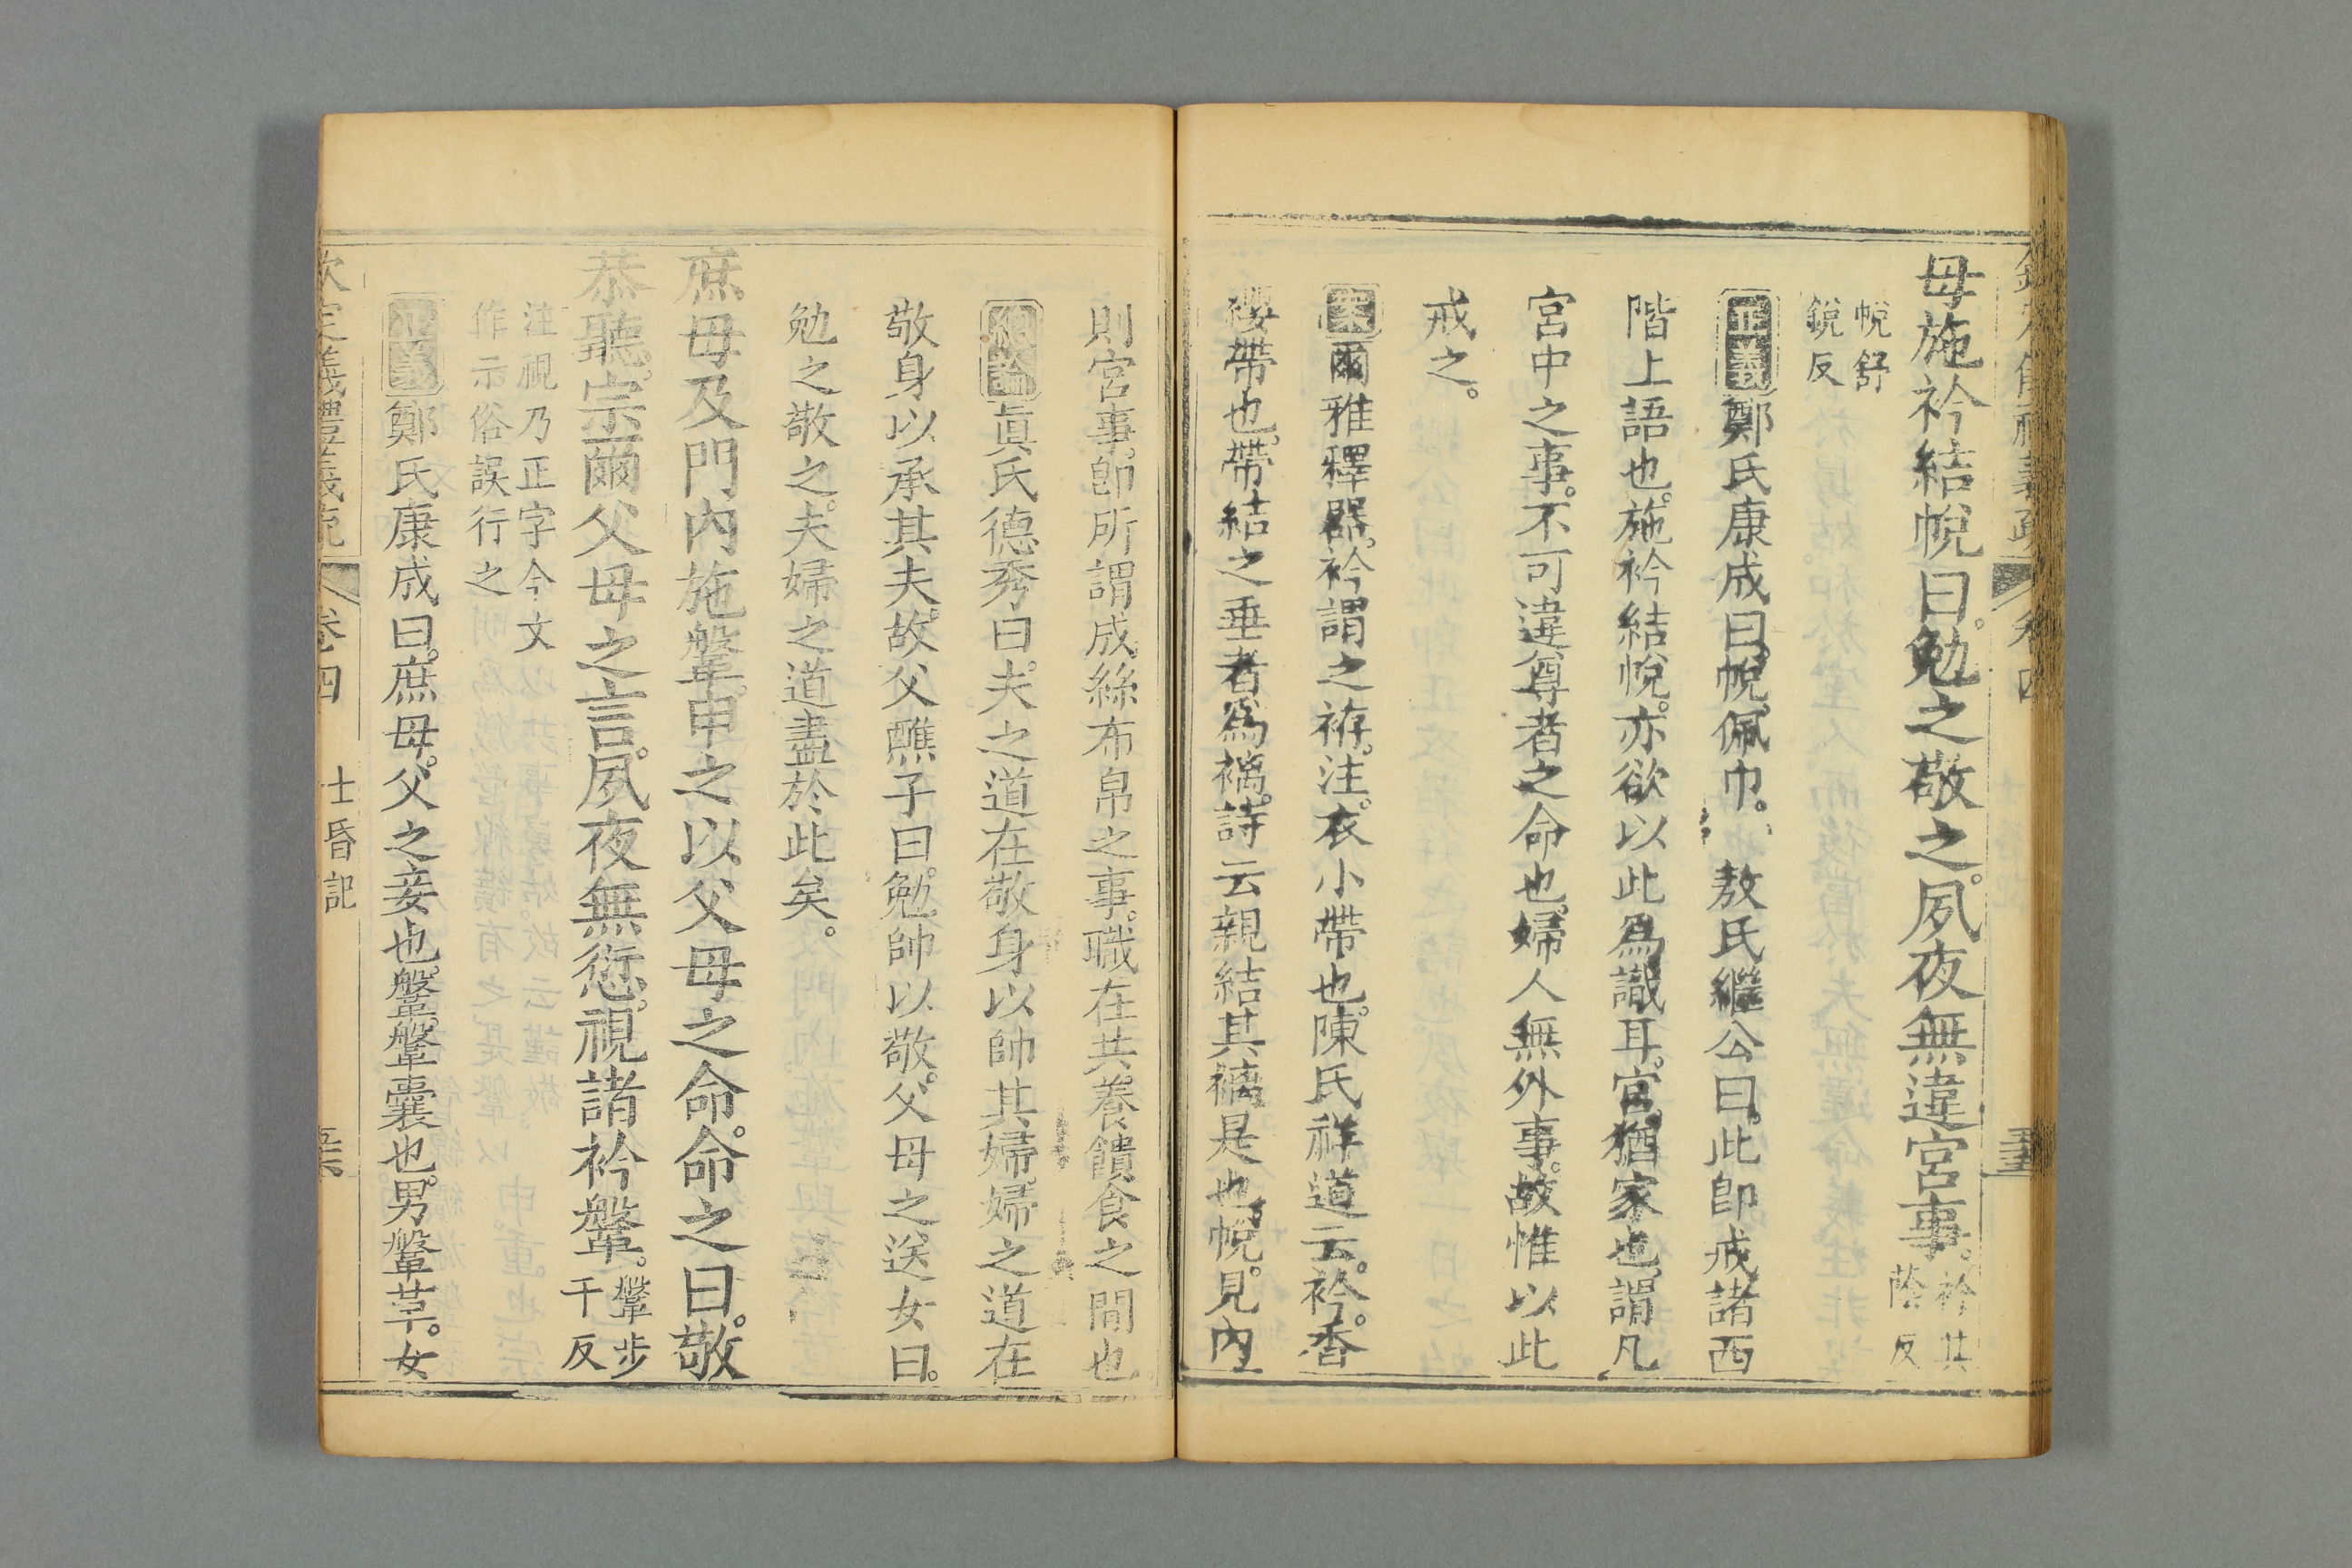 母施衿結帨曰。勉之敬之。夙夜無違宮事。衿其
蔭反
帨舒
銳反
正義鄭氏康成曰。帨。佩巾。 敖氏繼公曰。此卽戒諸西
階上語也。施衿結帨。亦欲以此爲識耳。宮。猶家也。謂凡
宮中之事。不可違尊者之命也。婦人無外事。故惟以此
戒之。
案爾雅釋器。衿謂之袸。注。衣小帶也。陳氏祥道云。衿。香
纓帶也。帶結之垂者爲褵。詩云親結其褵是也。帨。見內
則宮事。卽所謂成絲布帛之事。職在共養饋食之閒也。
總論眞氏德秀曰。夫之道在敬身以帥其婦。婦之道在
敬身以承其夫。故父醮子曰。勉帥以敬。父母之送女曰。
勉之敬之。夫婦之道盡於此矣。
庶母及門內施鞶。申之以父母之命。命之曰。敬
恭聽。宗爾父母之言。夙夜無愆。視諸衿鞶。鞶步
千反
注視乃正字今文
作示俗誤行之
正義鄭氏康成曰。庶母。父之妾也。鞶。鞶囊也。男鞶革。女
欽定義禮義疏 卷四 士昏記